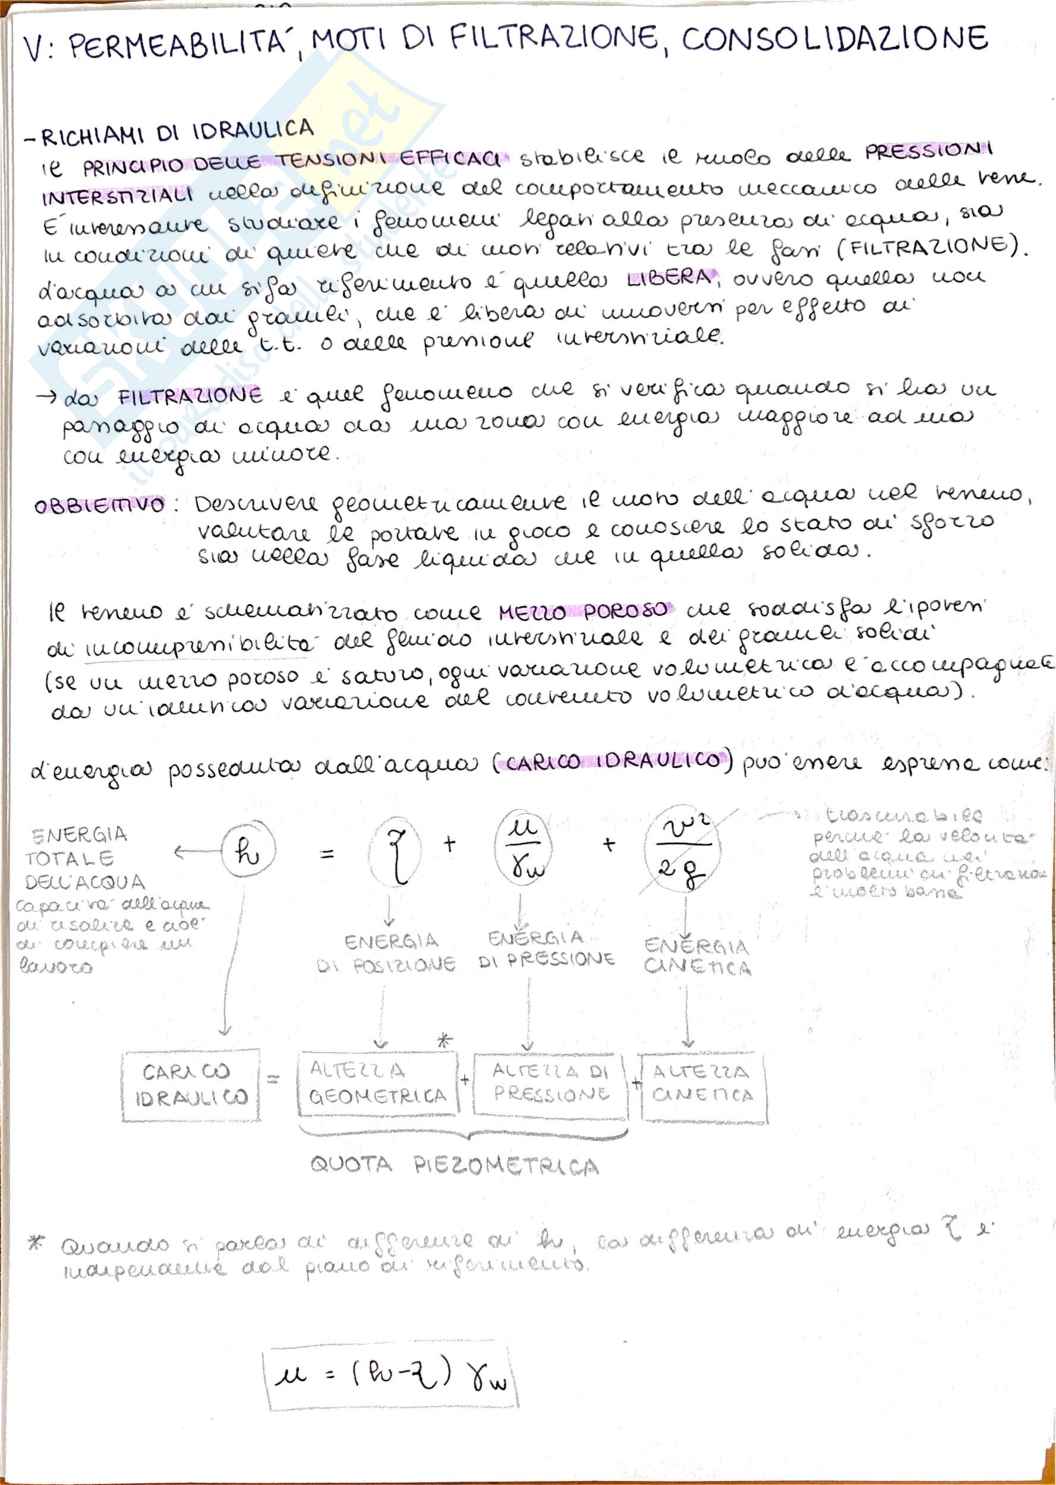 V: PERMEABILITA', MOTI DI FILTRAZIONE, CONSOLIDAZIONE
- RICHIAMI DI IDRAULICA
Il PRINCIPIO DELLE TENSIONI EFFICACI stabilisce il ruolo delle PRESSIONI
INTERSTIZIALI nella definizione del comportamento meccanico delle terre.
E' interessante studiare i fenomeni legati alla presenza di acqua, sia
in condizioni di quiete che di moti relativi tra le fasi (FILTRAZIONE).
L'acqua a cui si fa riferimento è quella LIBERA, ovvero quella non
adsorbita dai granuli, che è libera di muoversi per effetto di
variazioni delle t.t. o delle pressioni interstiziale.
→ La FILTRAZIONE è quel fenomeno che si verifica quando si ha un
passaggio di acqua da una zona con energia maggiore ad una
con energia minore.
OBBIETTIVO: Descrivere geometricamente il moto dell'acqua nel terreno,
valutare le portate in gioco e conoscere lo stato di sforzo
sia nella fase liquida che in quella solida.
Il terreno è schematizzato come MEZZO POROSO che soddisfa l'ipotesi
di incompressibilità del fluido interstiziale e dei granuli solidi
(se un mezzo poroso è saturo, ogni variazione volumetrica è accompagnata
da un'identica variazione del contenuto volumetrico d'acqua).
L'energia posseduta dall'acqua (CARICO IDRAULICO) può essere espressa come:
ENERGIA TOTALE DELL'ACQUA
capacità dell'acqua
di risalire e cioè
di compiere un
lavoro
← h = ζ + u/γw + v²/2g
→ trascurabile
perché la velocità
dell'acqua nei
problemi di filtrazione
è molto bassa
ENERGIA DI POSIZIONE
ENERGIA DI PRESSIONE
ENERGIA CINETICA
CARICO IDRAULICO = ALTEZZA GEOMETRICA * + ALTEZZA DI PRESSIONE + ALTEZZA CINETICA
QUOTA PIEZOMETRICA
* Quando si parla di differenze di h, la differenza di energia ζ è
indipendente dal piano di riferimento.
u = (h-ζ) γw